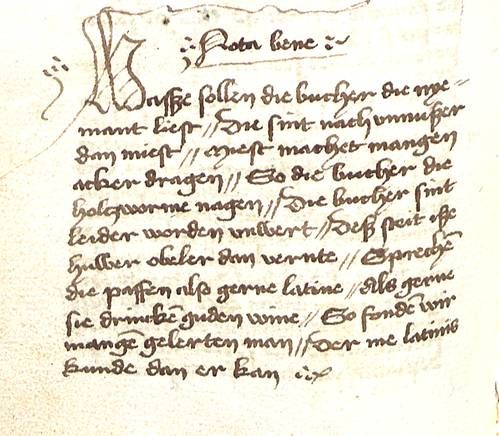 Nota bene
Wasße sollen die bucher die nye-
mant liest // Die sint nach vnnußer
dan miest // Miest machet mangen
acker dragen // So die bucher die
holczworme nagen // Die bucher sint
leider worden vnwert // Deß steit iße
huwer obeler dan vernte // Sprechē
die paffen also gerne latine // Als gerne
sie drinckē guden wine // So fondē wir
mangē gelerten man // Der me latinis
kunde dan er kan